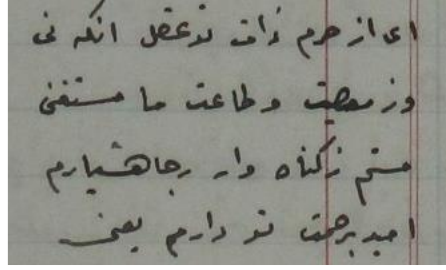 ای از حرم ذات تو عقل اگه نی
وز معصیت و طاعت ما مستغنی
مستم ز گناه واز رجا هشیارم
امید برحمت تو دارم یعنی